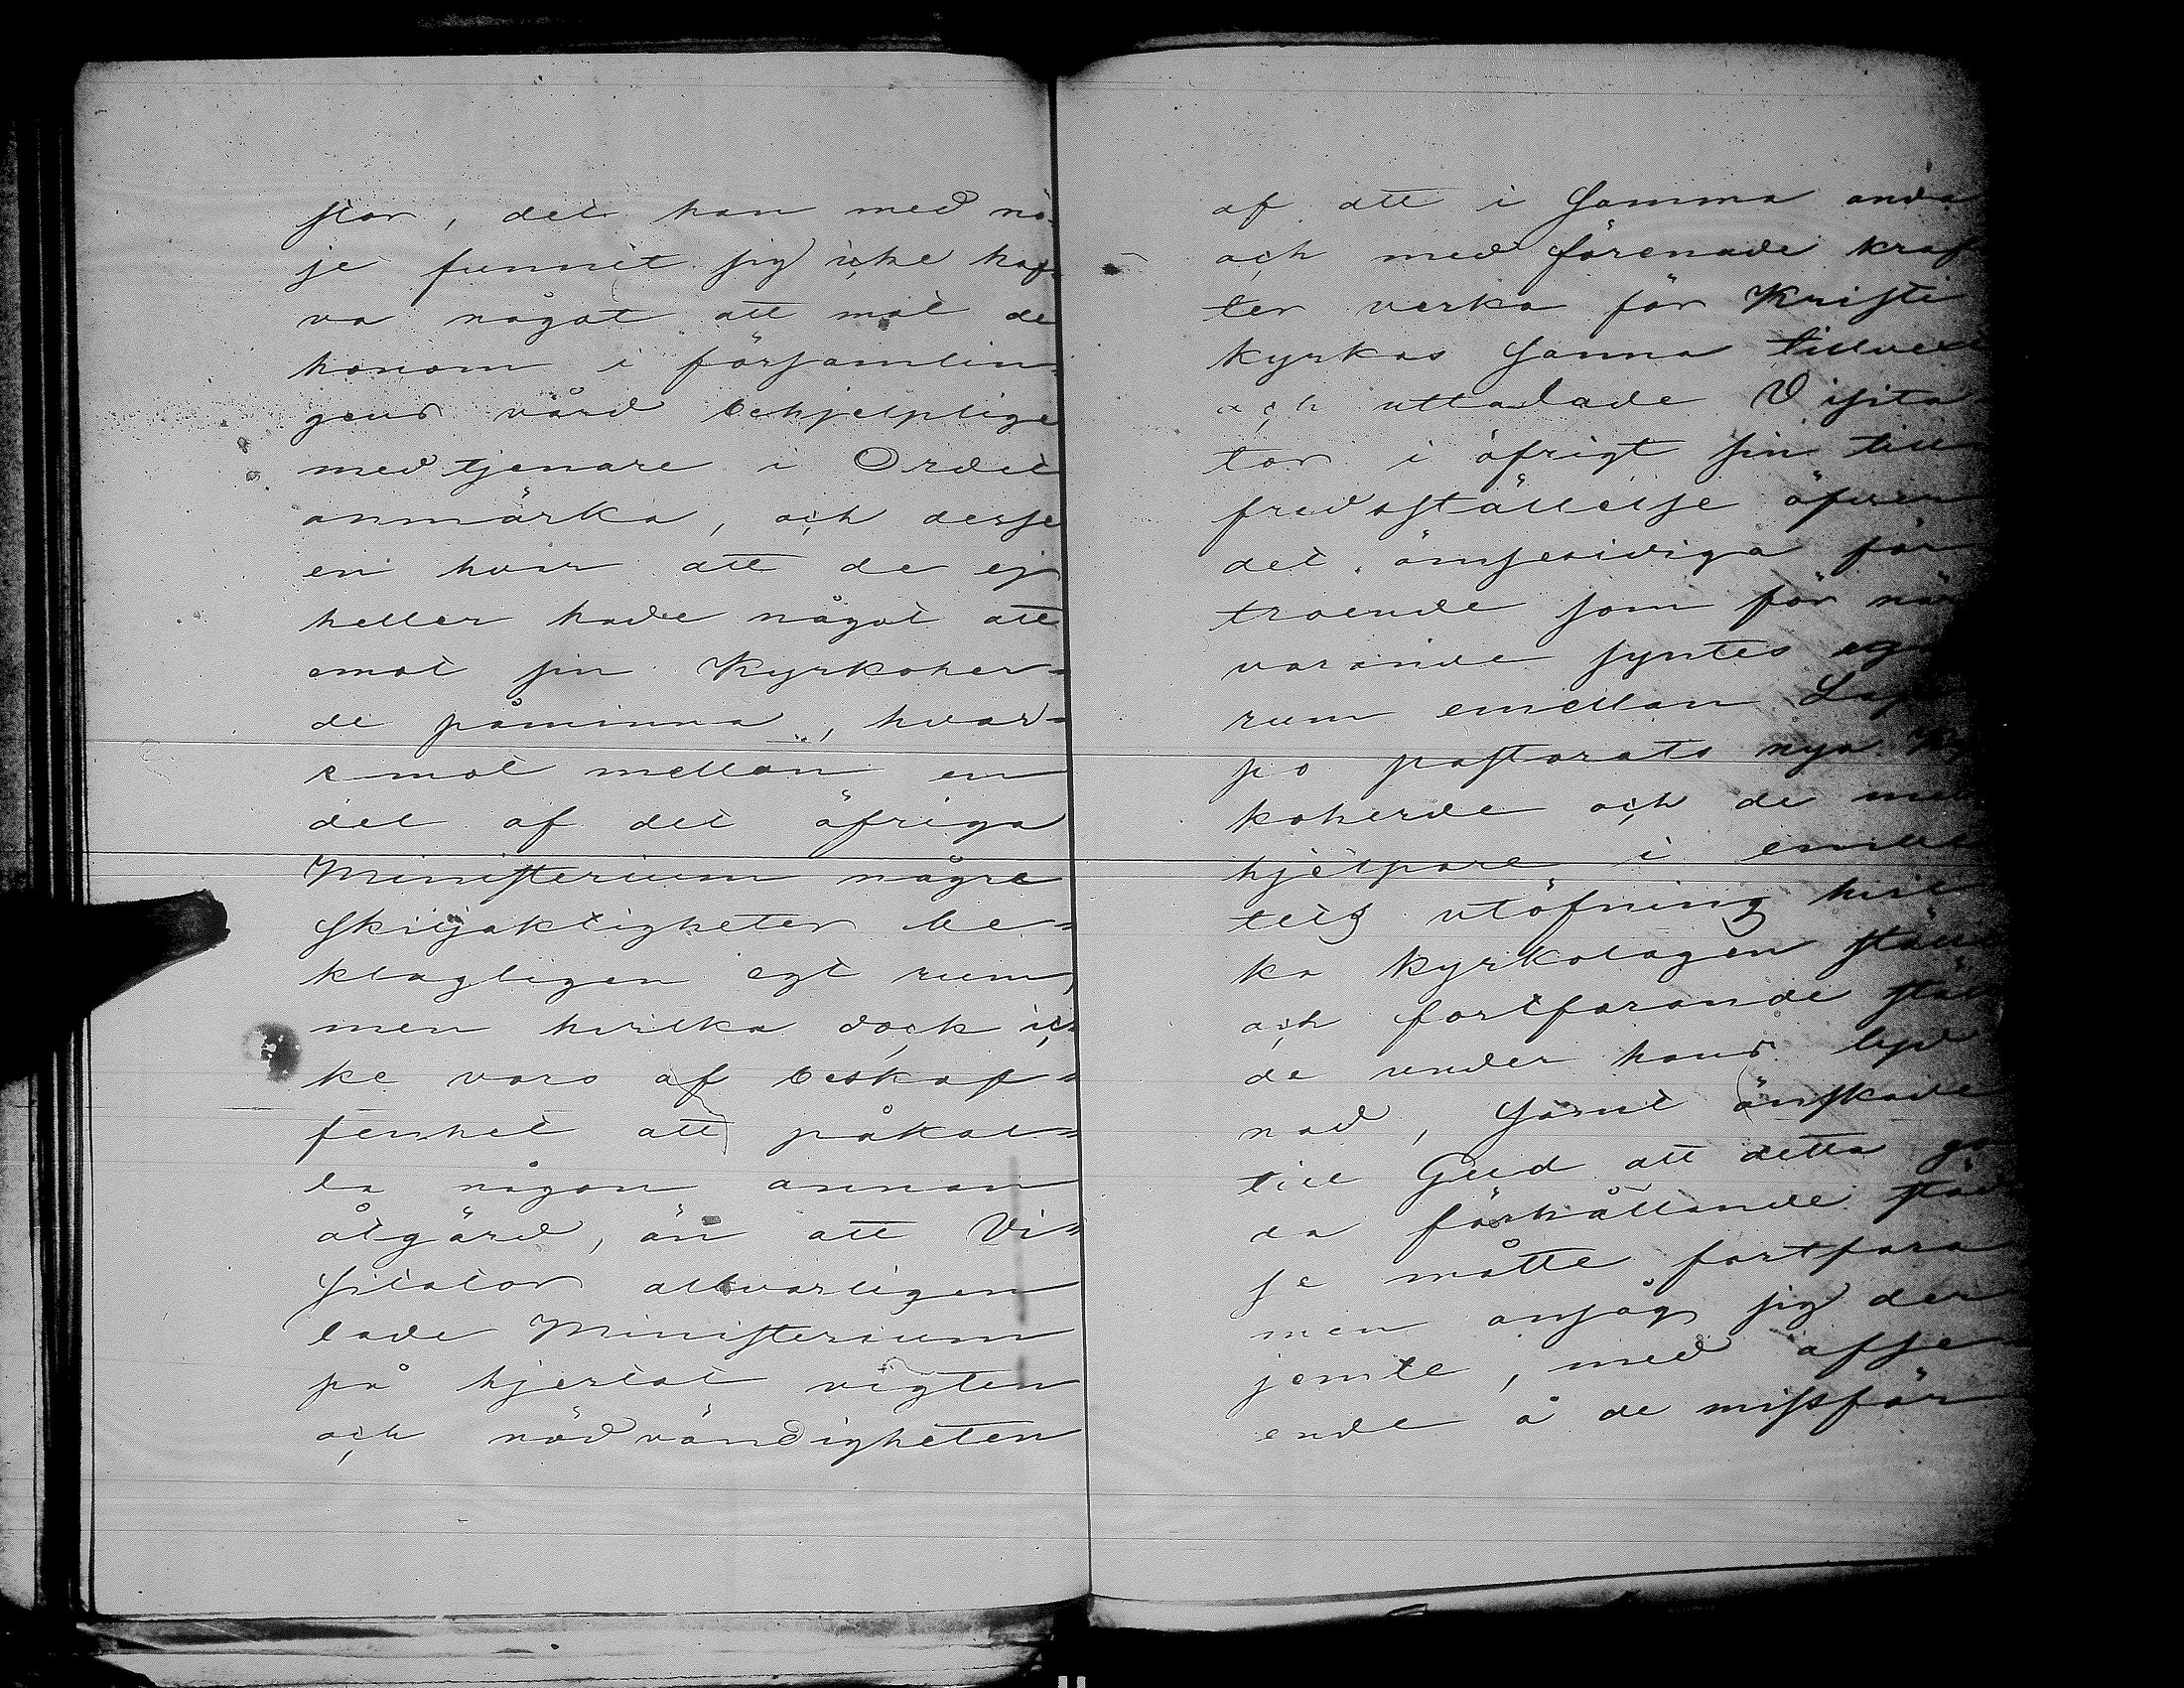 stor, det han med nö-
je funnit sig icke haf-
va något att mot de
honom i församlin-
gens vård behjelplige
medtjenare i Ordet
anmärka, och desse
en hvar att de ej
heller hade något att
emot sin Kyrkoher-
de påminna, hvar-
emot mellan en
del af det öfriga
Ministerium några
skiljaktigheter be-
klagligen egt rum,
men hvilka dock ic-
ke voro af beskaf-
fenhet att påkal-
la någon annan
åtgärd, än att Vi-
sitator allvarligen
lade Ministerium
på hjertat vigten
och nödvändigheten
af att i samma anda
och med förenade kraf
ter verka för Kristi
kyrkas sanna tillvext
och uttalade Visita
tor i öfrigt sin till
fredsställelse öfver
det ömsesidiga för
troende som för när
varande syntes ega
rum emellan Lap
po pastorats nya Kyr
koherde och de med
hjelpare i embe
tets utöfning hvil
ka kyrkolagen ställt
och fortfarande stäl
de under hans lyd
nad, samt önskade
till Gud att detta go
da förhållande städ
se måtte fortfara
men ansåg sig der
jemte, med afse
ende å de missför